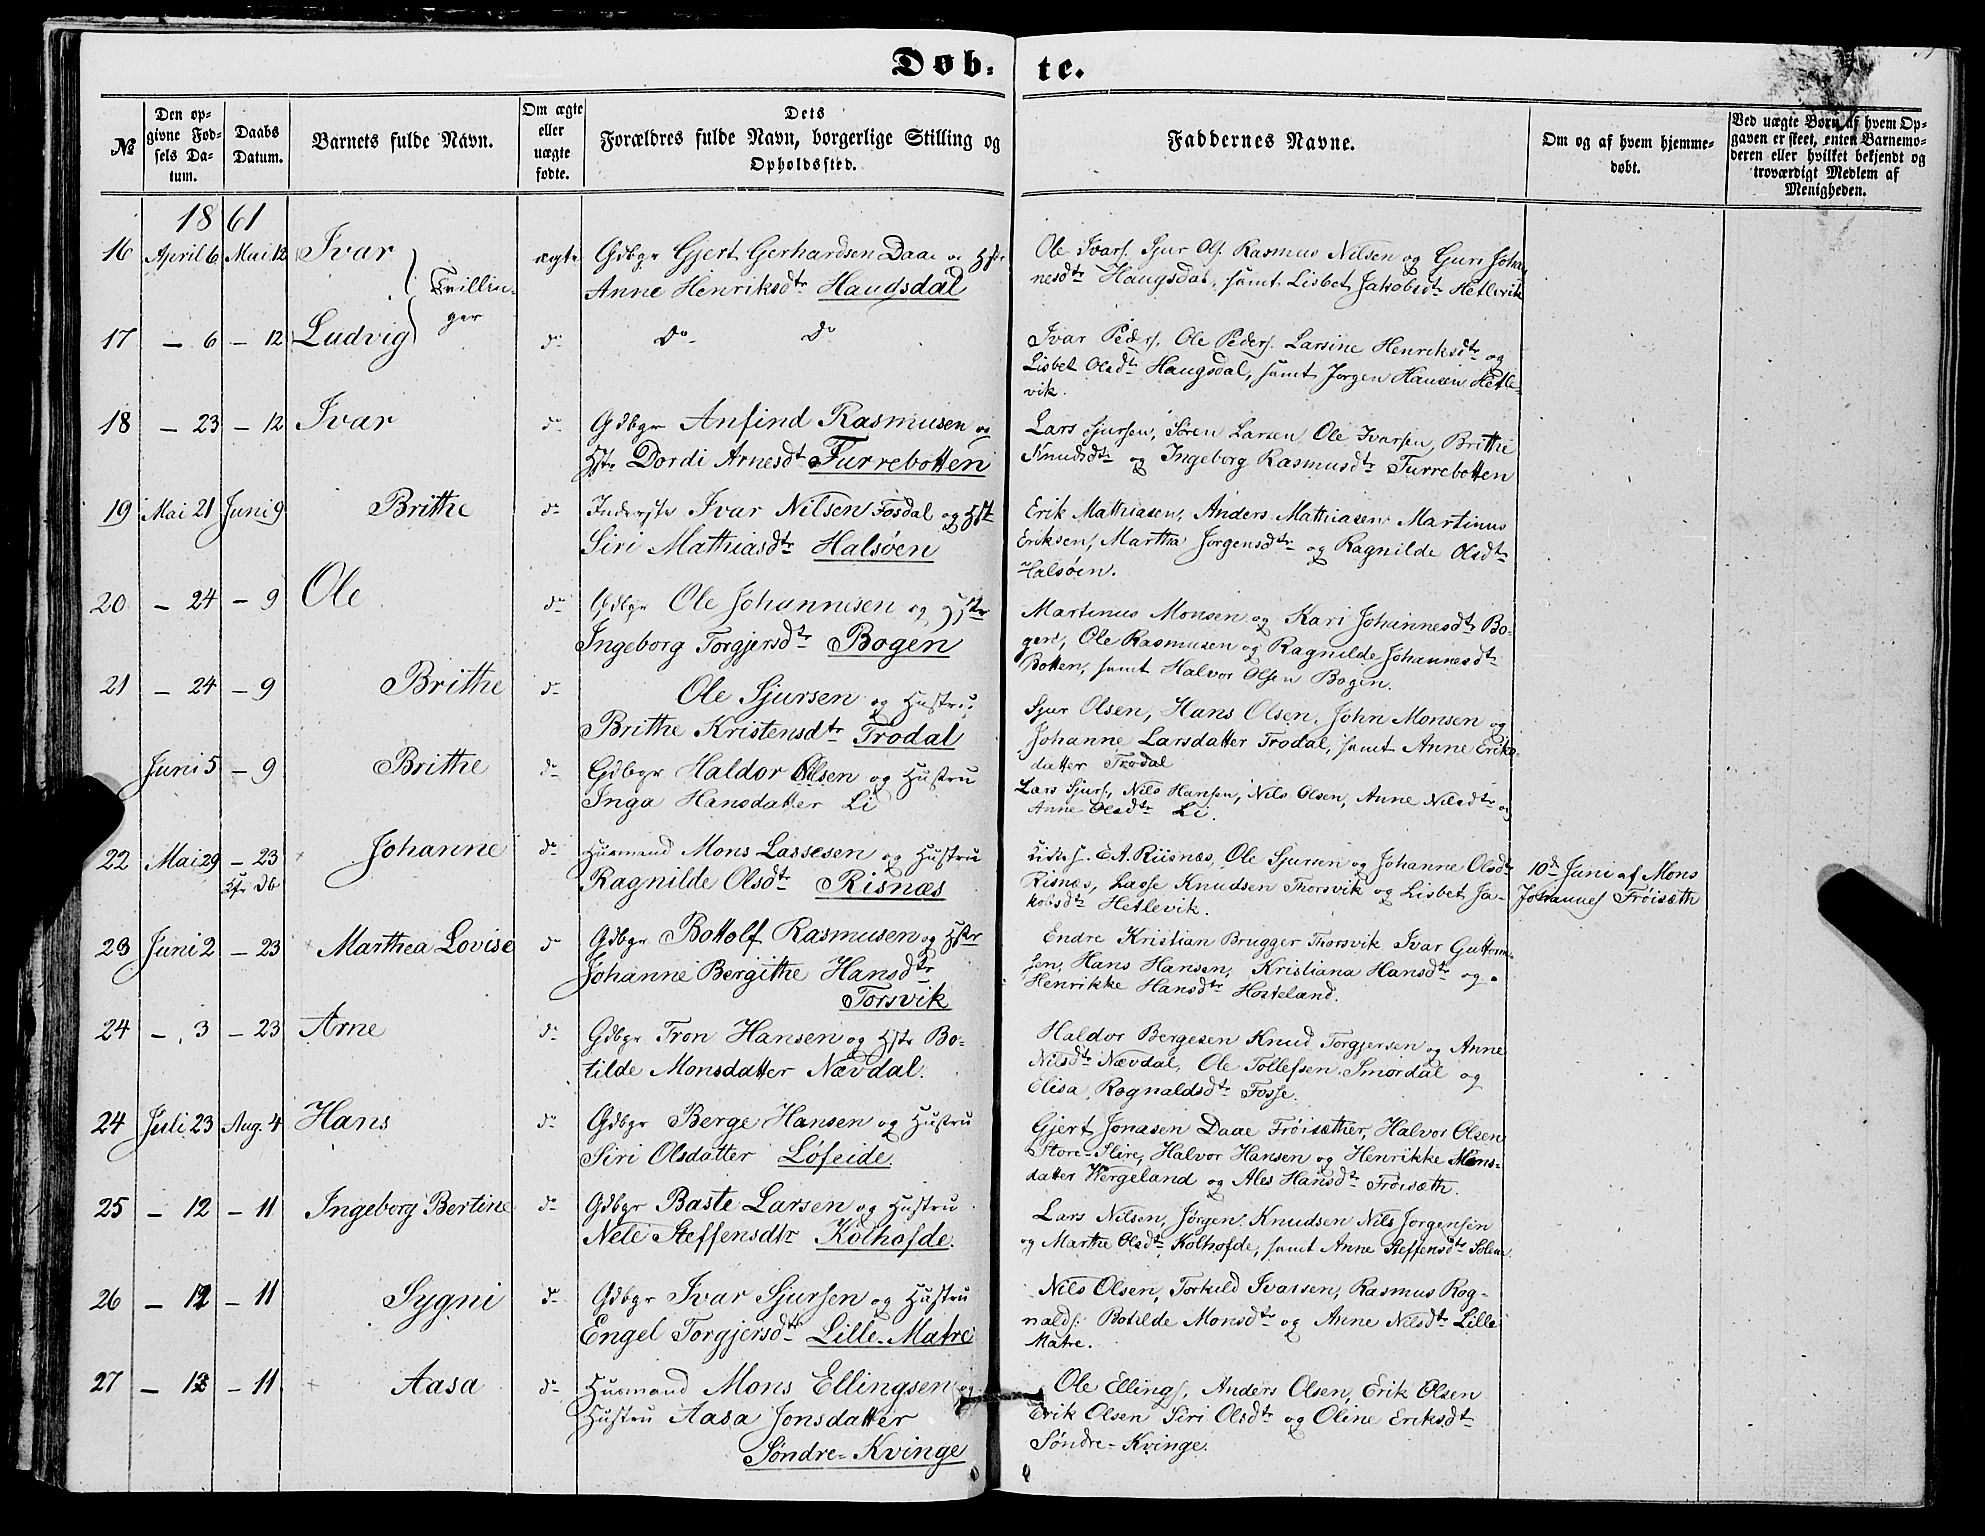 Døb-te.
№
Den op-
givne Fød-
sels Da-
tum.
Daabs
Datum.
Barnets fulde Navn.
Om ægte
eller
uægte
fødte.
Dets
Forældres fulde Navn, borgerlige Stilling og
Opholdssted.
Faddernes Navne.
Om og af hvem hjemme-
døbt.
Ved uægte Børn af hvem Op-
gaven er skeet, enten Barnemo-
deren eller hvilket bekjendt og
troværdigt Medlem af
Menigheden.
1861
16 April 6 Mai 12 Ivar ægte Gdbgr Gjert Gerhardsen Daae og Hstr
Anne Henriksdtr Haugsdal
Tvillin-
ger
Ole Ivars. Sjur Ols. Rasmus Nilsen og Guri Johan
nesdtr Haugsdal, samt Lisbet Jakobsdtr Hetlevik
17 – 6 – 12 Ludvig do do do
Ivar Peders. Ole Peders. Larsine Henriksdtr og
Lisbet Olsdtr Haugsdal, samt Jørgen Hansen Hetle-
vik.
18 – 23 – 12 Ivar do Gdbgr Anfind Rasmusen og
Hstr Dordi Arnesdtr Furrebotten
Lars Sjursen, Søren Larsen Ole Ivarsen, Brithe
Knudsdtr og Ingeborg Rasmusdtr Furrebotten
19 Mai 21 Juni 9 Brithe do Inderste Ivar Nilsen Fosdal og Hstr
Siri Mathiasdtr Halsøen
Erik Mathiasen, Anders Mathiasen Martinus
Eriksen, Martha Jørgensdtr og Ragnilde Olsdtr
Halsøen.
20 – 24 – 9 Ole do Gdbgr Ole Johannesen og Hstr
Ingeborg Torgjersdtr Bogen
Martinus Monsen og Kari Johannesdtr Bo-
gen, Ole Rasmusen og Ragnilde Johannesdtr
Botten, samt Halvor Olsen Bogen.
21 – 24 – 9 Brithe do Ole Sjursen og Hustru
Brithe Kristensdtr Trodal
Sjur Olsen, Hans Olsen, John Monsen og
Johanne Larsdatter Trodal, samt Anne Eriks
datter Trodal
Juni 5 – 9 Brithe do Gdbgr Haldor Olsen og Hustru
Inga Hansdatter Li
Lars Sjurs, Nils Hansen, Nils Olsen, Anne Nilsdtr og
Anne Olsdtr Li.
22 Mai 29 – 23 Johanne do Husmand Mons Lassesen og Hustru
Ragnilde Olsdtr Risnæs
E. A. Riisnæs, Ole Sjursen og Johanne Olsdtr
Risnæs, Lasse Knudsen Thorsvik og Lisbet Ja-
kobsdtr Hetlevik.
10d Juni af Mons
Johannes Frøisæth
23 Juni 2 – 23 Marthea Lovise do Gdbgr Bottolf Rasmusen og Hstr
Johanne Bergithe Hansdtr
Torsvik
Endre Kristian Brugger Thorsvik Ivar Guttorm-
sen, Hans Hansen, Kristiana Hansdtr og
Henrikke Hansdtr Hosteland.
24 – 3 – 23 Arne do Gdbgr Tron Hansen og Hstr Bo-
tilde Monsdatter Nævdal.
Haldor Bergesen Knud Torgjersen og Anne
Nilsdtr Nævdal, Ole Tollefsen Smørdal og
Elisa Rognaldsdtr Fosse.
24 Juli 23 Aug. 4 Hans do Gdbgr Berge Hansen og Hustru
Siri Olsdatter Løfeide.
Gjert Jonasen Daae Frøisæther, Halvor Olsen
Store-Slire, Halvor Hansen og Henrikke Mons-
datter Wergeland og Ales Hansdtr Frøisæth.
25 – 12 – 11 Ingeborg Bertine do Gdbgr Baste Larsen og Hustru
Nele Steffensdtr Kolhofde.
Lars Nilsen, Jørgen Knudsen Nils Jørgensen
og Marthe Olsdtr Kolhofde, samt Anne Steffensdtr
26 – 12 – 11 Sygni do Gdbgr Ivar Sjursen og Hustru
Engel Torgjersdtr Lille-Matre
Nils Olsen, Torkild Ivarsen, Rasmus Rog-
nalds. Botilde Monsdtr og Anne Nilsdtr Lille
Matre.
27 – 12 – 11 Aasa do Husmand Mons Ellingsen og
Hustru Aasa Jonsdatter
Søndre-Kvinge
Ole Ellings, Anders Olsen, Erik Olsen
Erik Olsen Siri Olsdtr og Oline Eriksdtr
Søndre-Kvinge.